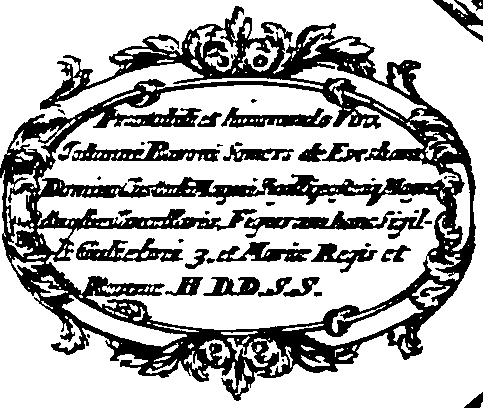 Prænobili et honorando Viro,
Johanni Baroni Somers de Evesham,
Domino Custodi Magni Sigilli Magnæ
Angliæ Cancellario, Figuram hanc Sigil-
li Gulielmi 3. et Mariæ Regis et
Reginæ H D.D. S.S.